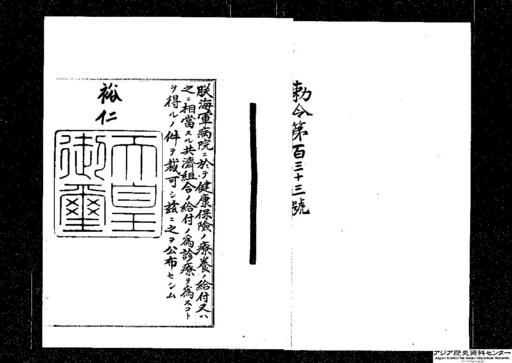 勅令第百三十三號
朕海軍病院ニ於テ健康保險ノ療養ノ給付又ハ
之ニ相當スル共濟組合ノ給付ノ爲診療ヲ爲スコト
ヲ得ルノ件ヲ裁可シ茲ニ之ヲ公布セシム
裕仁
天皇
御璽
アジア歴史資料センター
Japan Center for Asian Historical Records